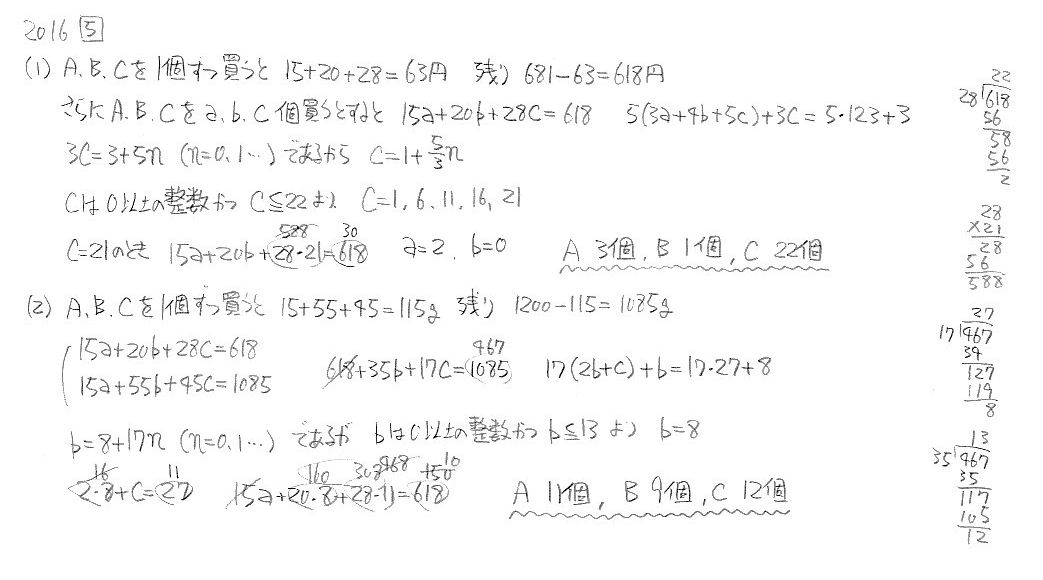 2016 5
(1) A、B、Cを1個ずつ買うと 15+20+28=63円 残り 681-63=618円
さらにA、B、Cをa、b、c個買うとすると 15a+20b+28c=618 5(3a+4b+5c)+3c=5・123+3
3c=3+5n (n=0、1…)であるから c=1+5/3n
cは0以上の整数かつ c≦22より c=1、6、11、16、21
c=21のとき 15a+20b+28・21=618 588 30 a=2、b=0 A 3個、B 1個、C 22個
(2) A、B、Cを1個ずつ買うと 15+55+45=115g 残り 1200-115=1085g
15a+20b+28c=618
15a+55b+45c=1085
618+35b+17c=1085 467 17(2b+c)+b=17・27+8
b=8+17n (n=0、1…)であるが bは0以上の整数かつ b≦13より b=8
2・8+c=27 16 11 15a+20・8+28・11=618 160 308 468 150 10 A 11個、B 9個、C 12個
22
28 618
56
58
56
2
28
×21
28
56
588
27
17 467
34
127
119
8
13
35 467
35
117
105
12